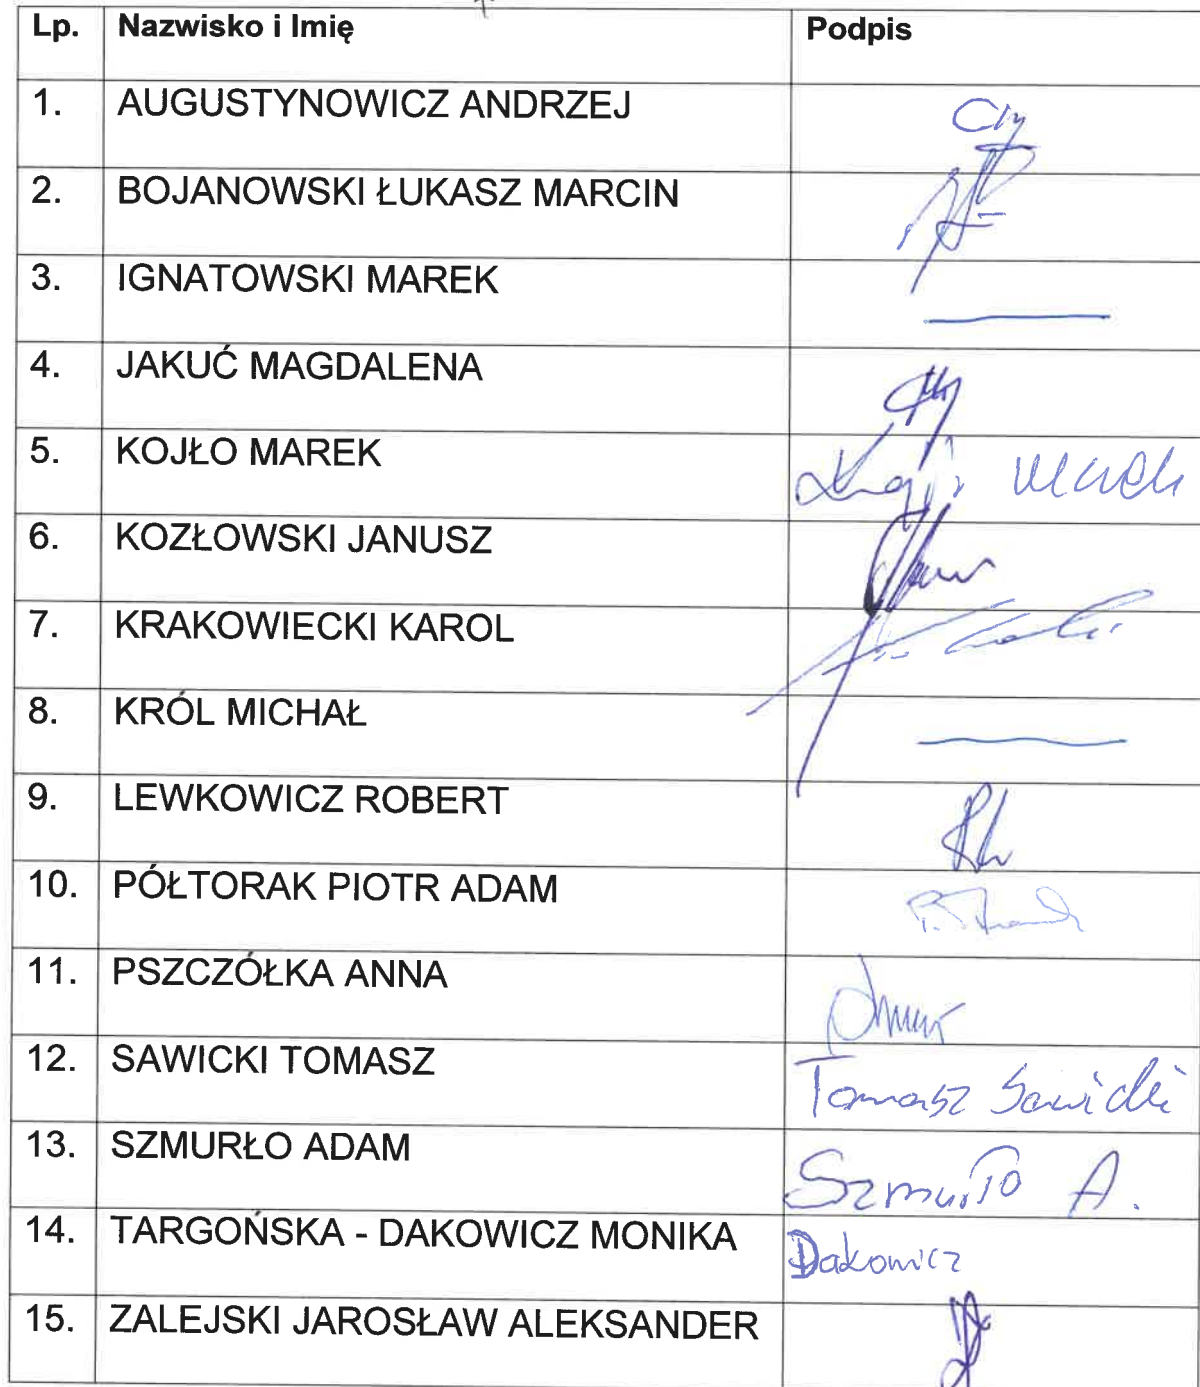 Lp. Nazwisko i Imię Podpis
1. AUGUSTYNOWICZ ANDRZEJ
2. BOJANOWSKI ŁUKASZ MARCIN
3. IGNATOWSKI MAREK
4. JAKUĆ MAGDALENA
5. KOJŁO MAREK
6. KOZŁOWSKI JANUSZ
7. KRAKOWIECKI KAROL
8. KRÓL MICHAŁ
9. LEWKOWICZ ROBERT
10. PÓŁTORAK PIOTR ADAM
11. PSZCZÓŁKA ANNA
12. SAWICKI TOMASZ Tomasz Sawicki
13. SZMURŁO ADAM Szmurło A.
14. TARGOŃSKA - DAKOWICZ MONIKA Dakowicz
15. ZALEJSKI JAROSŁAW ALEKSANDER